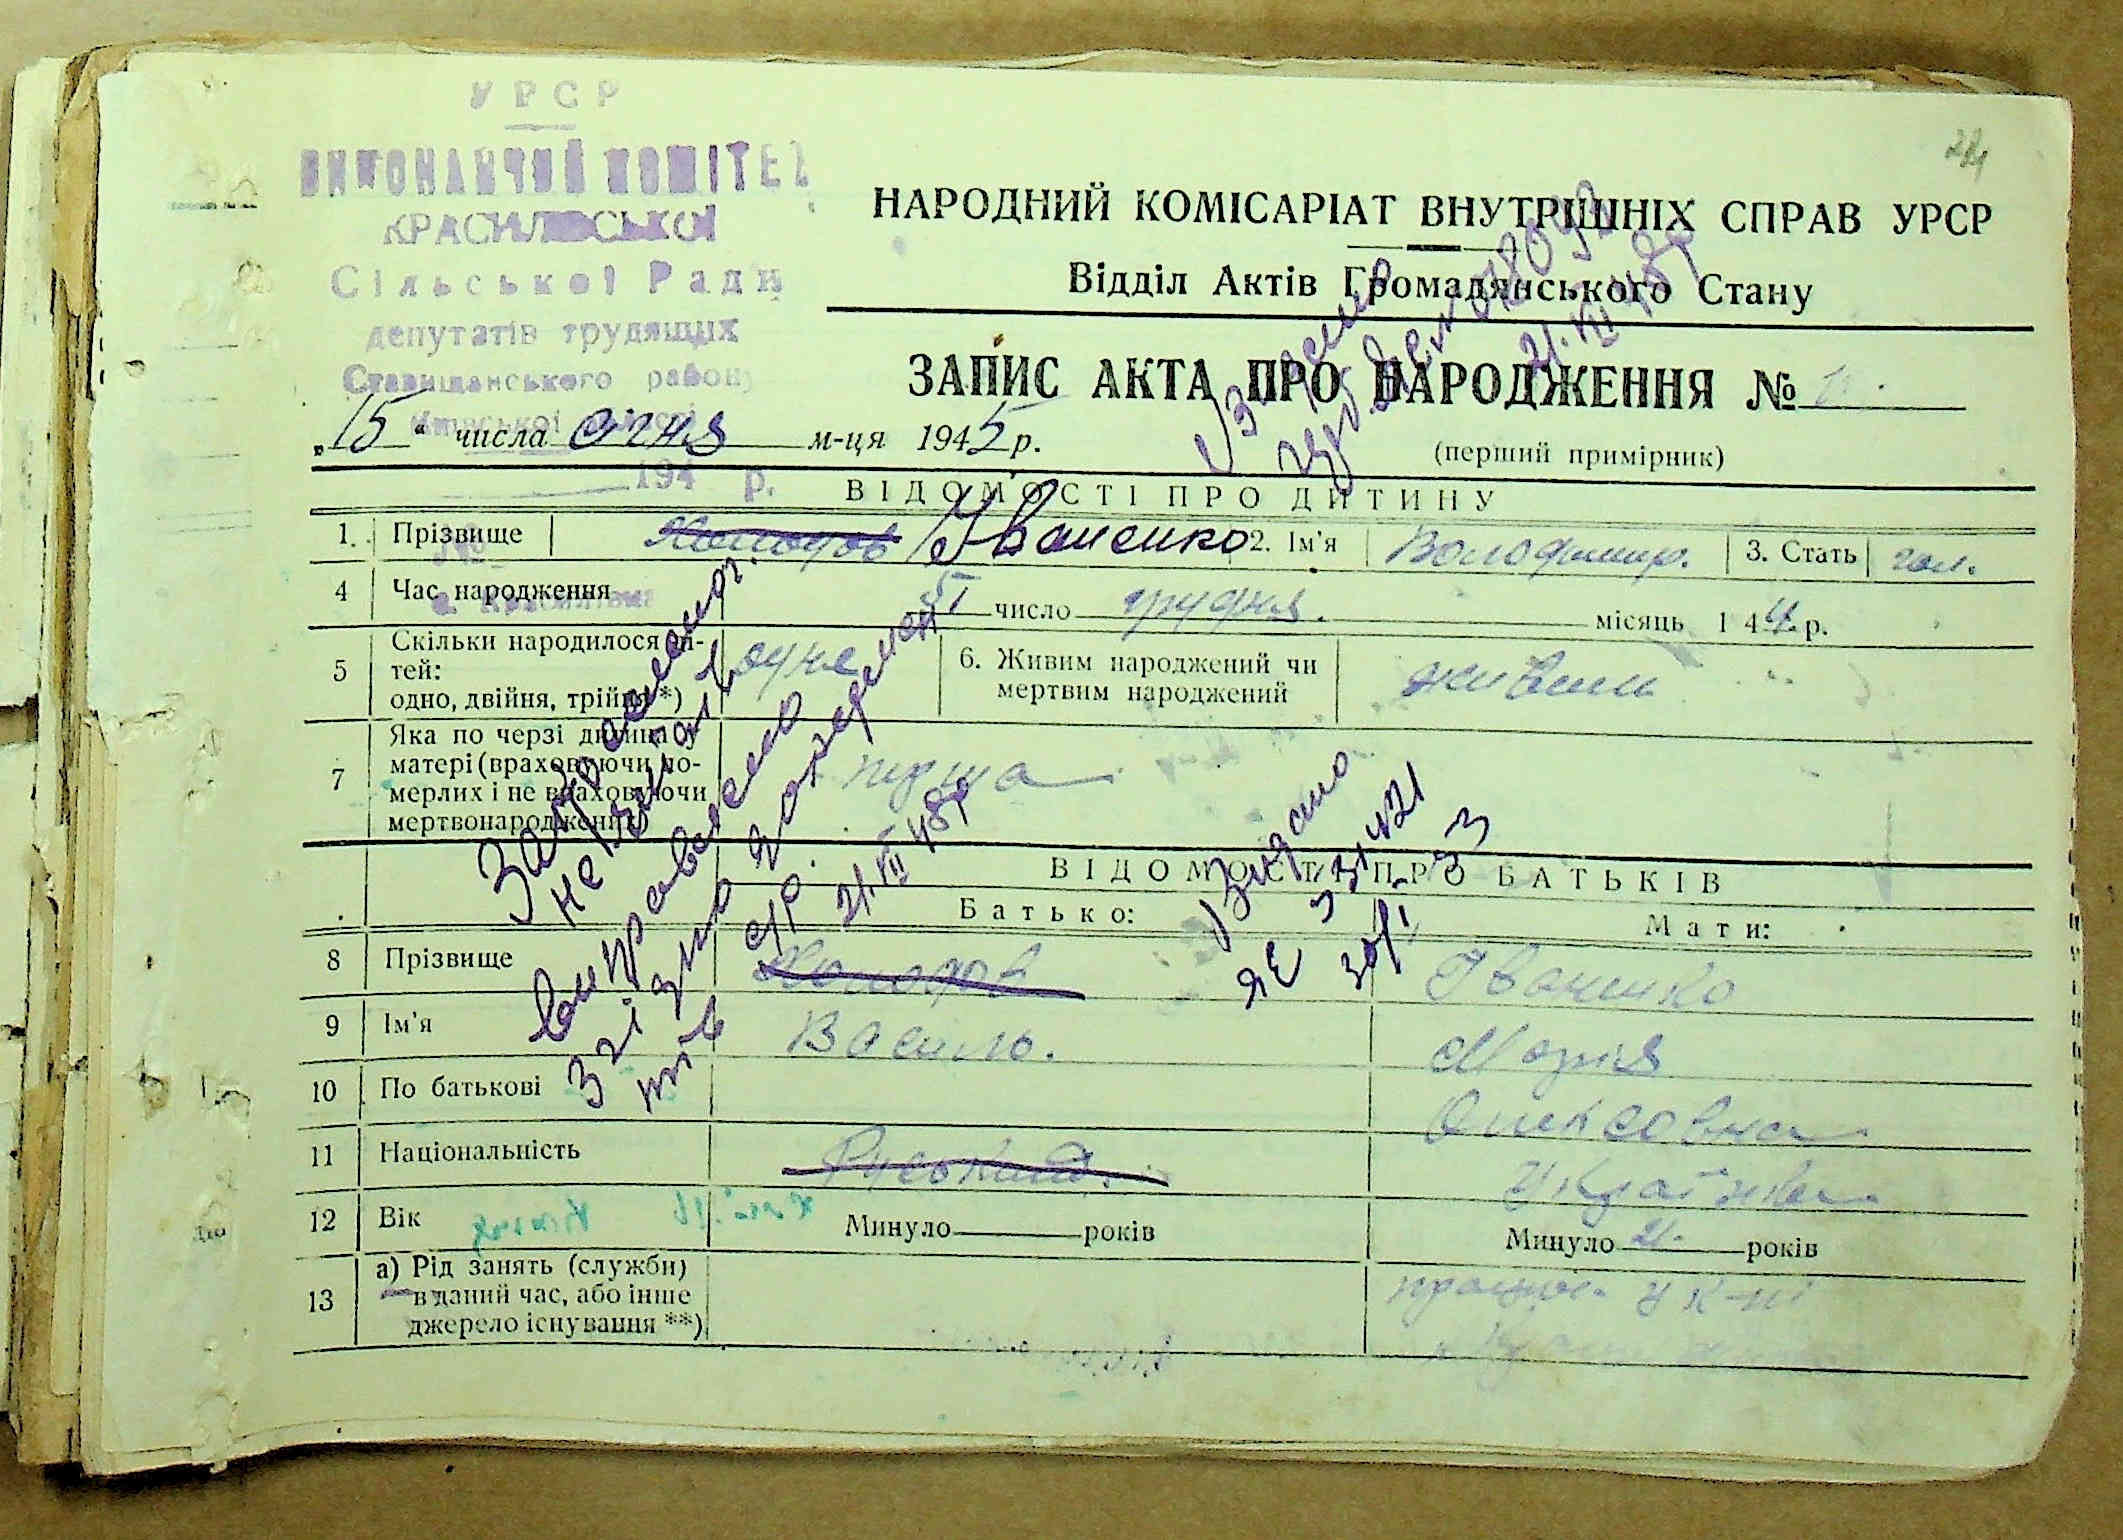 24
УРСР
ВИКОНАВЧИЙ КОМІТЕТ
КРАСИЛІВСЬКОЇ
Сільської Ради
депутатів трудящих
Ставищанського району
Київської області
194 р.
№
с. Красилівка
НАРОДНИЙ КОМІСАРІАТ ВНУТРІШНІХ СПРАВ УРСР
Відділ Актів Громадянського Стану
ЗАПИС АКТА ПРО НАРОДЖЕННЯ №
„15“ числа січня м-ця 1945 р.
(перший примірник)
21.VII 48р
ВІДОМОСТІ ПРО ДИТИНУ
1. Прізвище Холодов Іваненко 2. Ім'я Володимир. 3. Стать чол.
4 Час народження число грудня. місяць 1 44 р.
5 Скільки народилося ді-
тей:
одно, двійня, трійня *)
одне
6. Живим народжений чи
мертвим народжений
живим
7 Яка по черзі дитина у
матері (враховуючи по-
мерлих і не враховуючи
мертвонароджених)
перша
Закреслено
не читать
виправлено
згідно
21.VII 48р
Видано
ЯЕ
ВІДОМОСТІ ПРО БАТЬКІВ
Батько: Мати:
8 Прізвище Холодов Іваненко
9 Ім'я Василь. Марія
10 По батькові Олексовна
11 Національність Руський. Українка
12 Вік Минуло років Минуло 21. років
13 а) Рід занять (служби)
в даний час, або інше
джерело існування **)
працює у к-пі